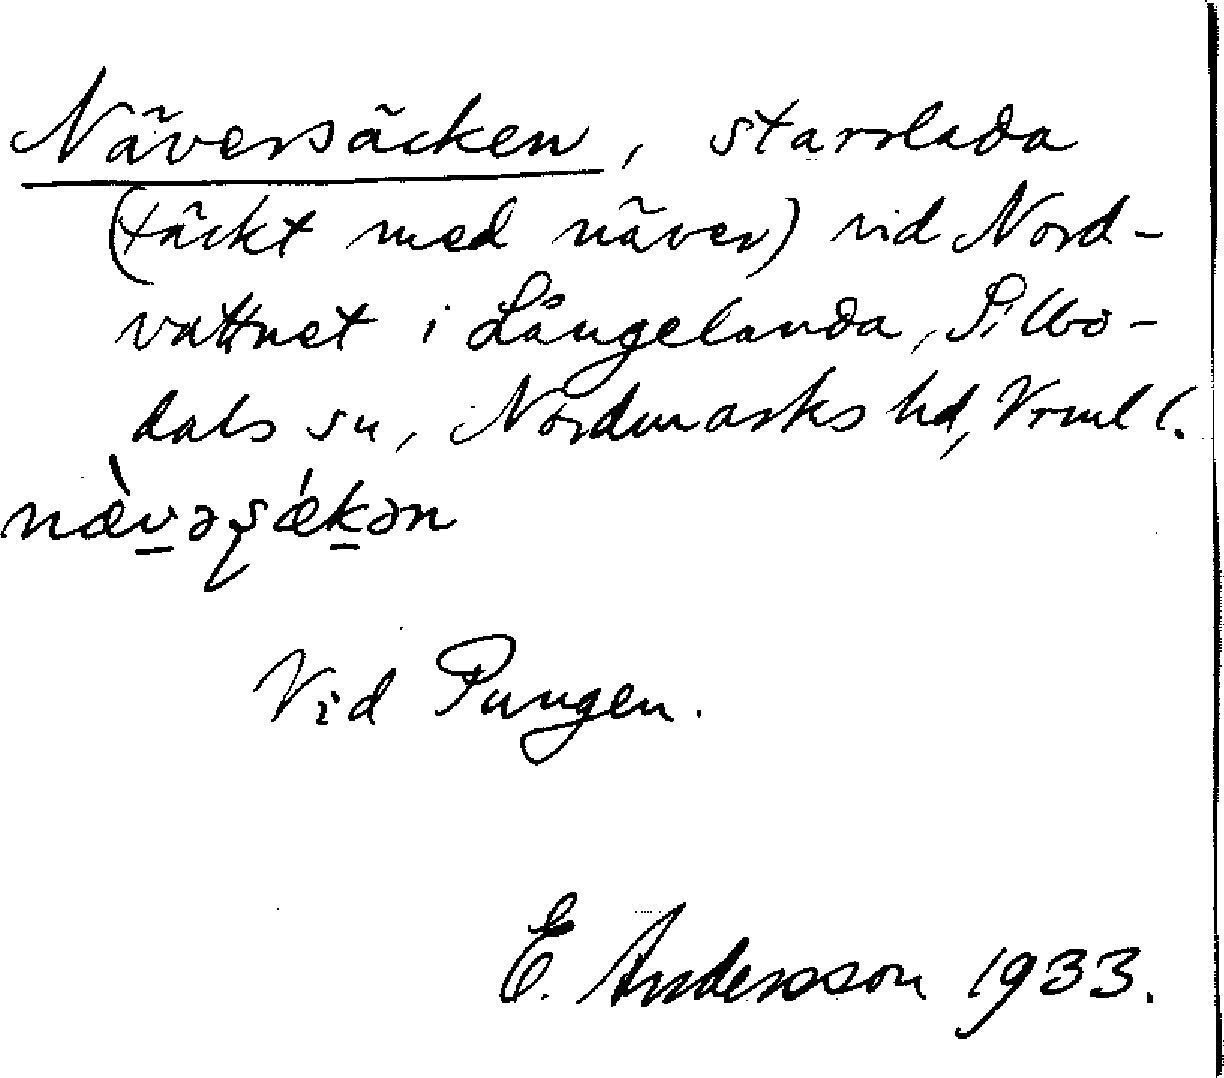 Näversäcken, starrlada
(täckt med näver) vid Nord-
vattnet i Långelanda, Sillbo-
dals sn, Nordmarks hd, Vrml l.
næ̀v̲əʂǽk̲ən
Vid Pungen.
E. Andersson 1933.